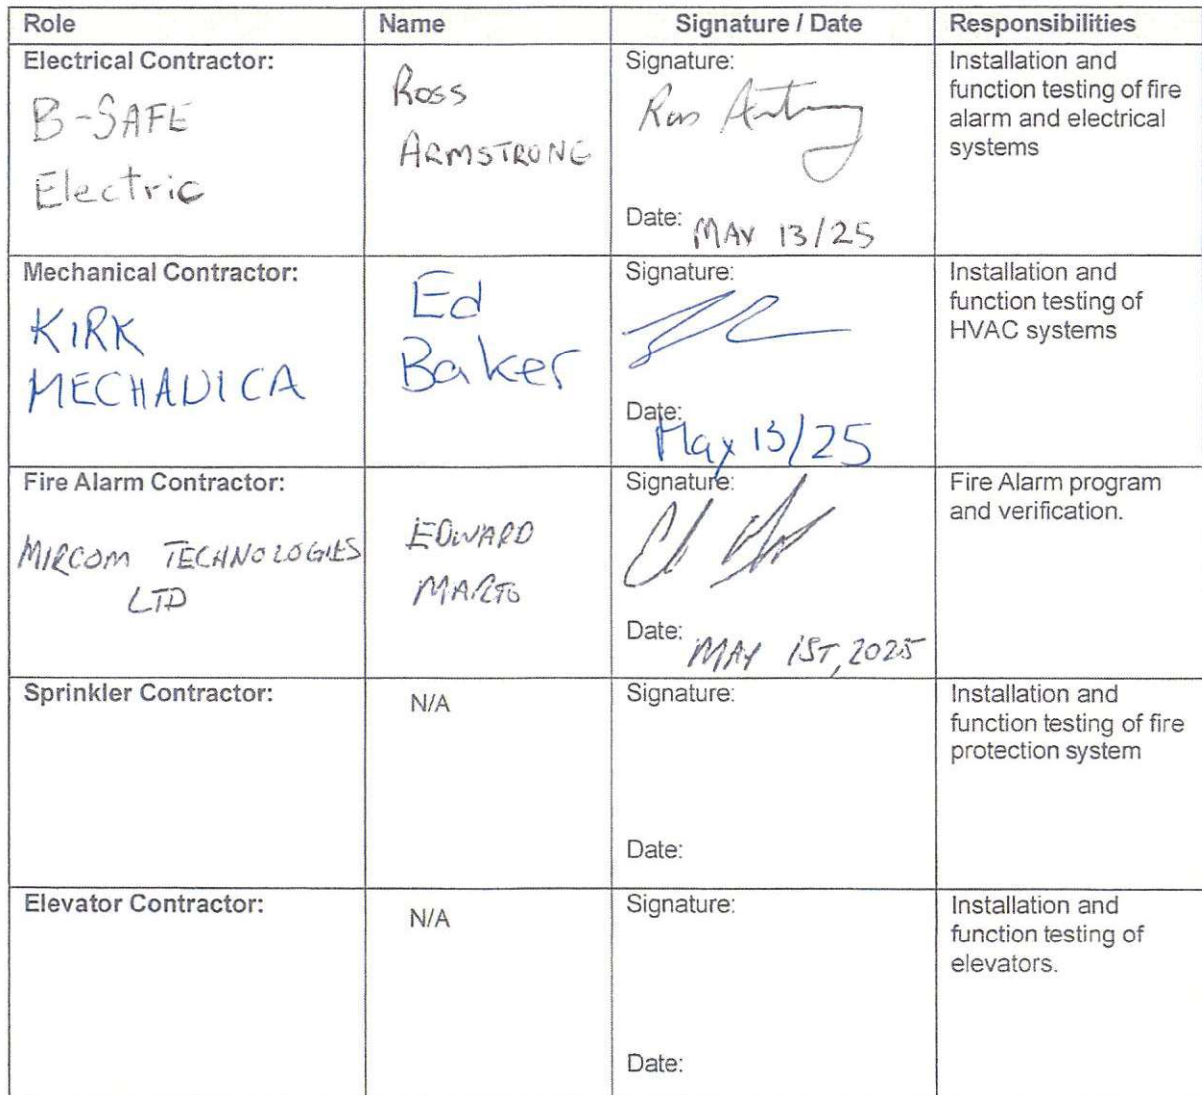 Role Name Signature / Date Responsibilities
Electrical Contractor:
B-SAFE
Electric
Ross
ARMSTRONG
Signature:
Date: MAY 13/25
Installation and
function testing of fire
alarm and electrical
systems
Mechanical Contractor:
KIRK
MECHANICA
Ed
Baker
Signature:
Date:
May 13/25
Installation and
function testing of
HVAC systems
Fire Alarm Contractor:
MIRCOM TECHNOLOGIES
LTD
EDWARD
MARTO
Signature:
Date: MAY 1ST, 2025
Fire Alarm program
and verification.
Sprinkler Contractor:
N/A
Signature:
Date:
Installation and
function testing of fire
protection system
Elevator Contractor:
N/A
Signature:
Date:
Installation and
function testing of
elevators.